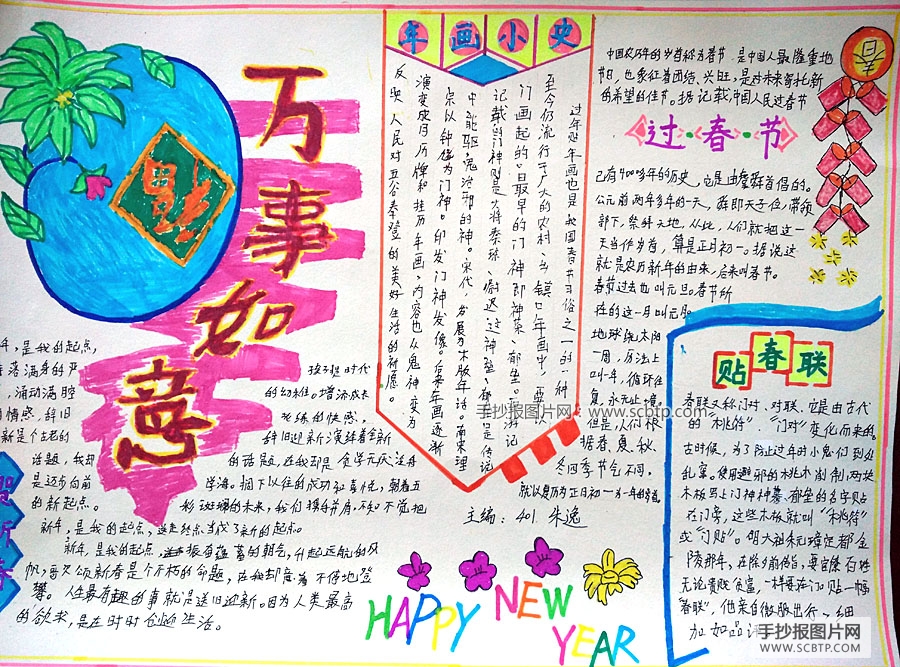 万事如意
福
年画小史
过年贴年画也是我国春节习俗之一的一种
至今仍流行于广大的农村、乡镇口年画中,要以
门画起的最早的门神即神荼、郁垒。
中能驱鬼治邪的神。宋代,发展为木版年话。南宋理
宗以钟馗为门神。印发门神发像。后来年画逐渐
演变成月历牌和挂历年画,内容也从鬼神变为
反映人民对五谷奉登的美好生活的祈愿。
春
中国农历年的岁首称为春节,是中国人最隆重地
节日,也象征着团结、兴旺,是对未来寄托新
的希望的佳节。据记载,中国人民过春节
过·春·节
已有4000多年的历史,它是由虞舜首倡的。
公元前两年多年的一天,舜即天子位,带领
部下,祭拜天地,从此,人们就把这一
天当作岁首,算是正月初一。据说这
就是农历新年的由来,后来叫春节。
春节过去也叫元旦。春节所
在的这一月叫元月。
地球绕太阳
一周,历法上
叫一年,循环往
复,永无止境。
但是,人们根
据春、夏、秋、
冬四季节气不同,
就以夏历为正月初一为一年的岁首。
主编:401 朱逸
贴春联
春联又称门对、对联、它是由古代
的“桃符”、“门对”变化而来的。
古时候,为了防止过年时小鬼们到处
乱窜。使用避邪的桃木削制两块
木板写上门神神荼、郁垒的名字贴
在门旁,这些木板就叫“桃符”
或“门贴”。明太祖朱元璋定都金
陵那年,在除夕前指,要官僚百姓
无论贵贱贫富,一样要在门贴一幅
春联”,他亲自微服出行,一细
加如品评
年,是我的起点,
落满身的严
,涌动满腔
情感,辞旧
新是个古老的
话题,我却
是迈步向前
的新起点。
孩子跟时代
的幼稚。增添成来
光练的快感,
辞旧迎新演绎着全新
的话题,在我却是贪学无厌泣舟
学海。捆下以往的成功和喜悦,朝着五
彩斑斓的未来,我们换希肩,不知不觉把
新年,是我的起点,这是终点当成了新年的起点。
新年,是我的起点,振奋蕴蓄的朝色,升起远航的风
帆,再久颂新春是个不朽的命题,在我却意为不停地登
攀。人生最有趣的事就是送旧迎新。因为人类最高
的欲求,是在时时创造生活。
贺新春
HAPPY NEW
YEAR
手抄报图片网:www.scbtp.com
手抄报图片网
WWW.SCBTP.COM